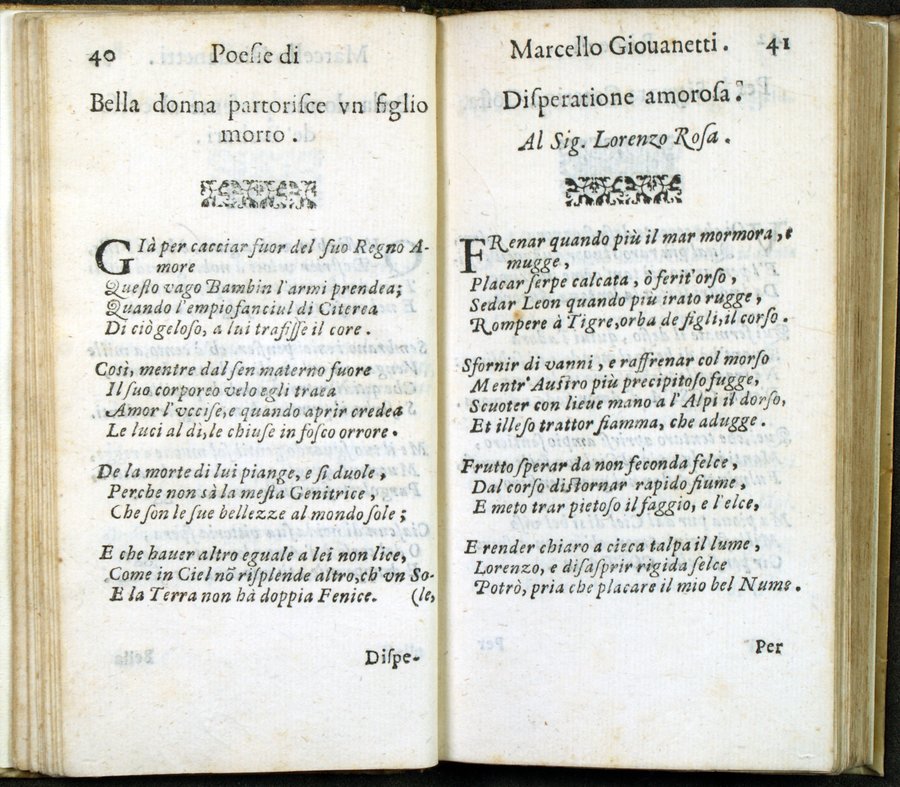 40 Poesie di
Bella donna partorisce vn figlio
morto .
GIà per cacciar fuor del suo Regno A-
more
Questo vago Bambin l'armi prendea;
Quando l'empio fanciul di Citerea
Di ciò geloso, a lui trafisse il core .
Così, mentre dal sen materno fuore
Il suo corporeo velo egli traea
Amor l'vccise, e quando aprir credea
Le luci al dì, le chiuse in fosco orrore .
De la morte di lui piange, e si duole,
Perche non sà la mesta Genitrice,
Che son le sue bellezze al mondo sole ;
E che hauer altro eguale a lei non lice,
Come in Ciel nõ risplende altro, ch'vn So-
E la Terra non hà doppia Fenice. (le,
Dispe-
Marcello Giouanetti . 41
Disperatione amorosa .
Al Sig. Lorenzo Rosa .
FRenar quando più il mar mormora, e
mugge,
Placar serpe calcata, ò ferit'orso,
Sedar Leon quando più irato rugge,
Rompere à Tigre, orba de figli, il corso .
Sfornir di vanni, e raffrenar col morso
Mentr'Austro più precipitoso fugge,
Scuoter con lieue mano a l'Alpi il dorso,
Et illeso trattar fiamma, che adugge .
Frutto sperar da non feconda felce,
Dal corso distornar rapido fiume,
E meto trar pietoso il faggio, e l'elce,
E render chiaro a cieca talpa il lume,
Lorenzo, e disasprir rigida selce
Potrò, pria che placare il mio bel Nume .
Per